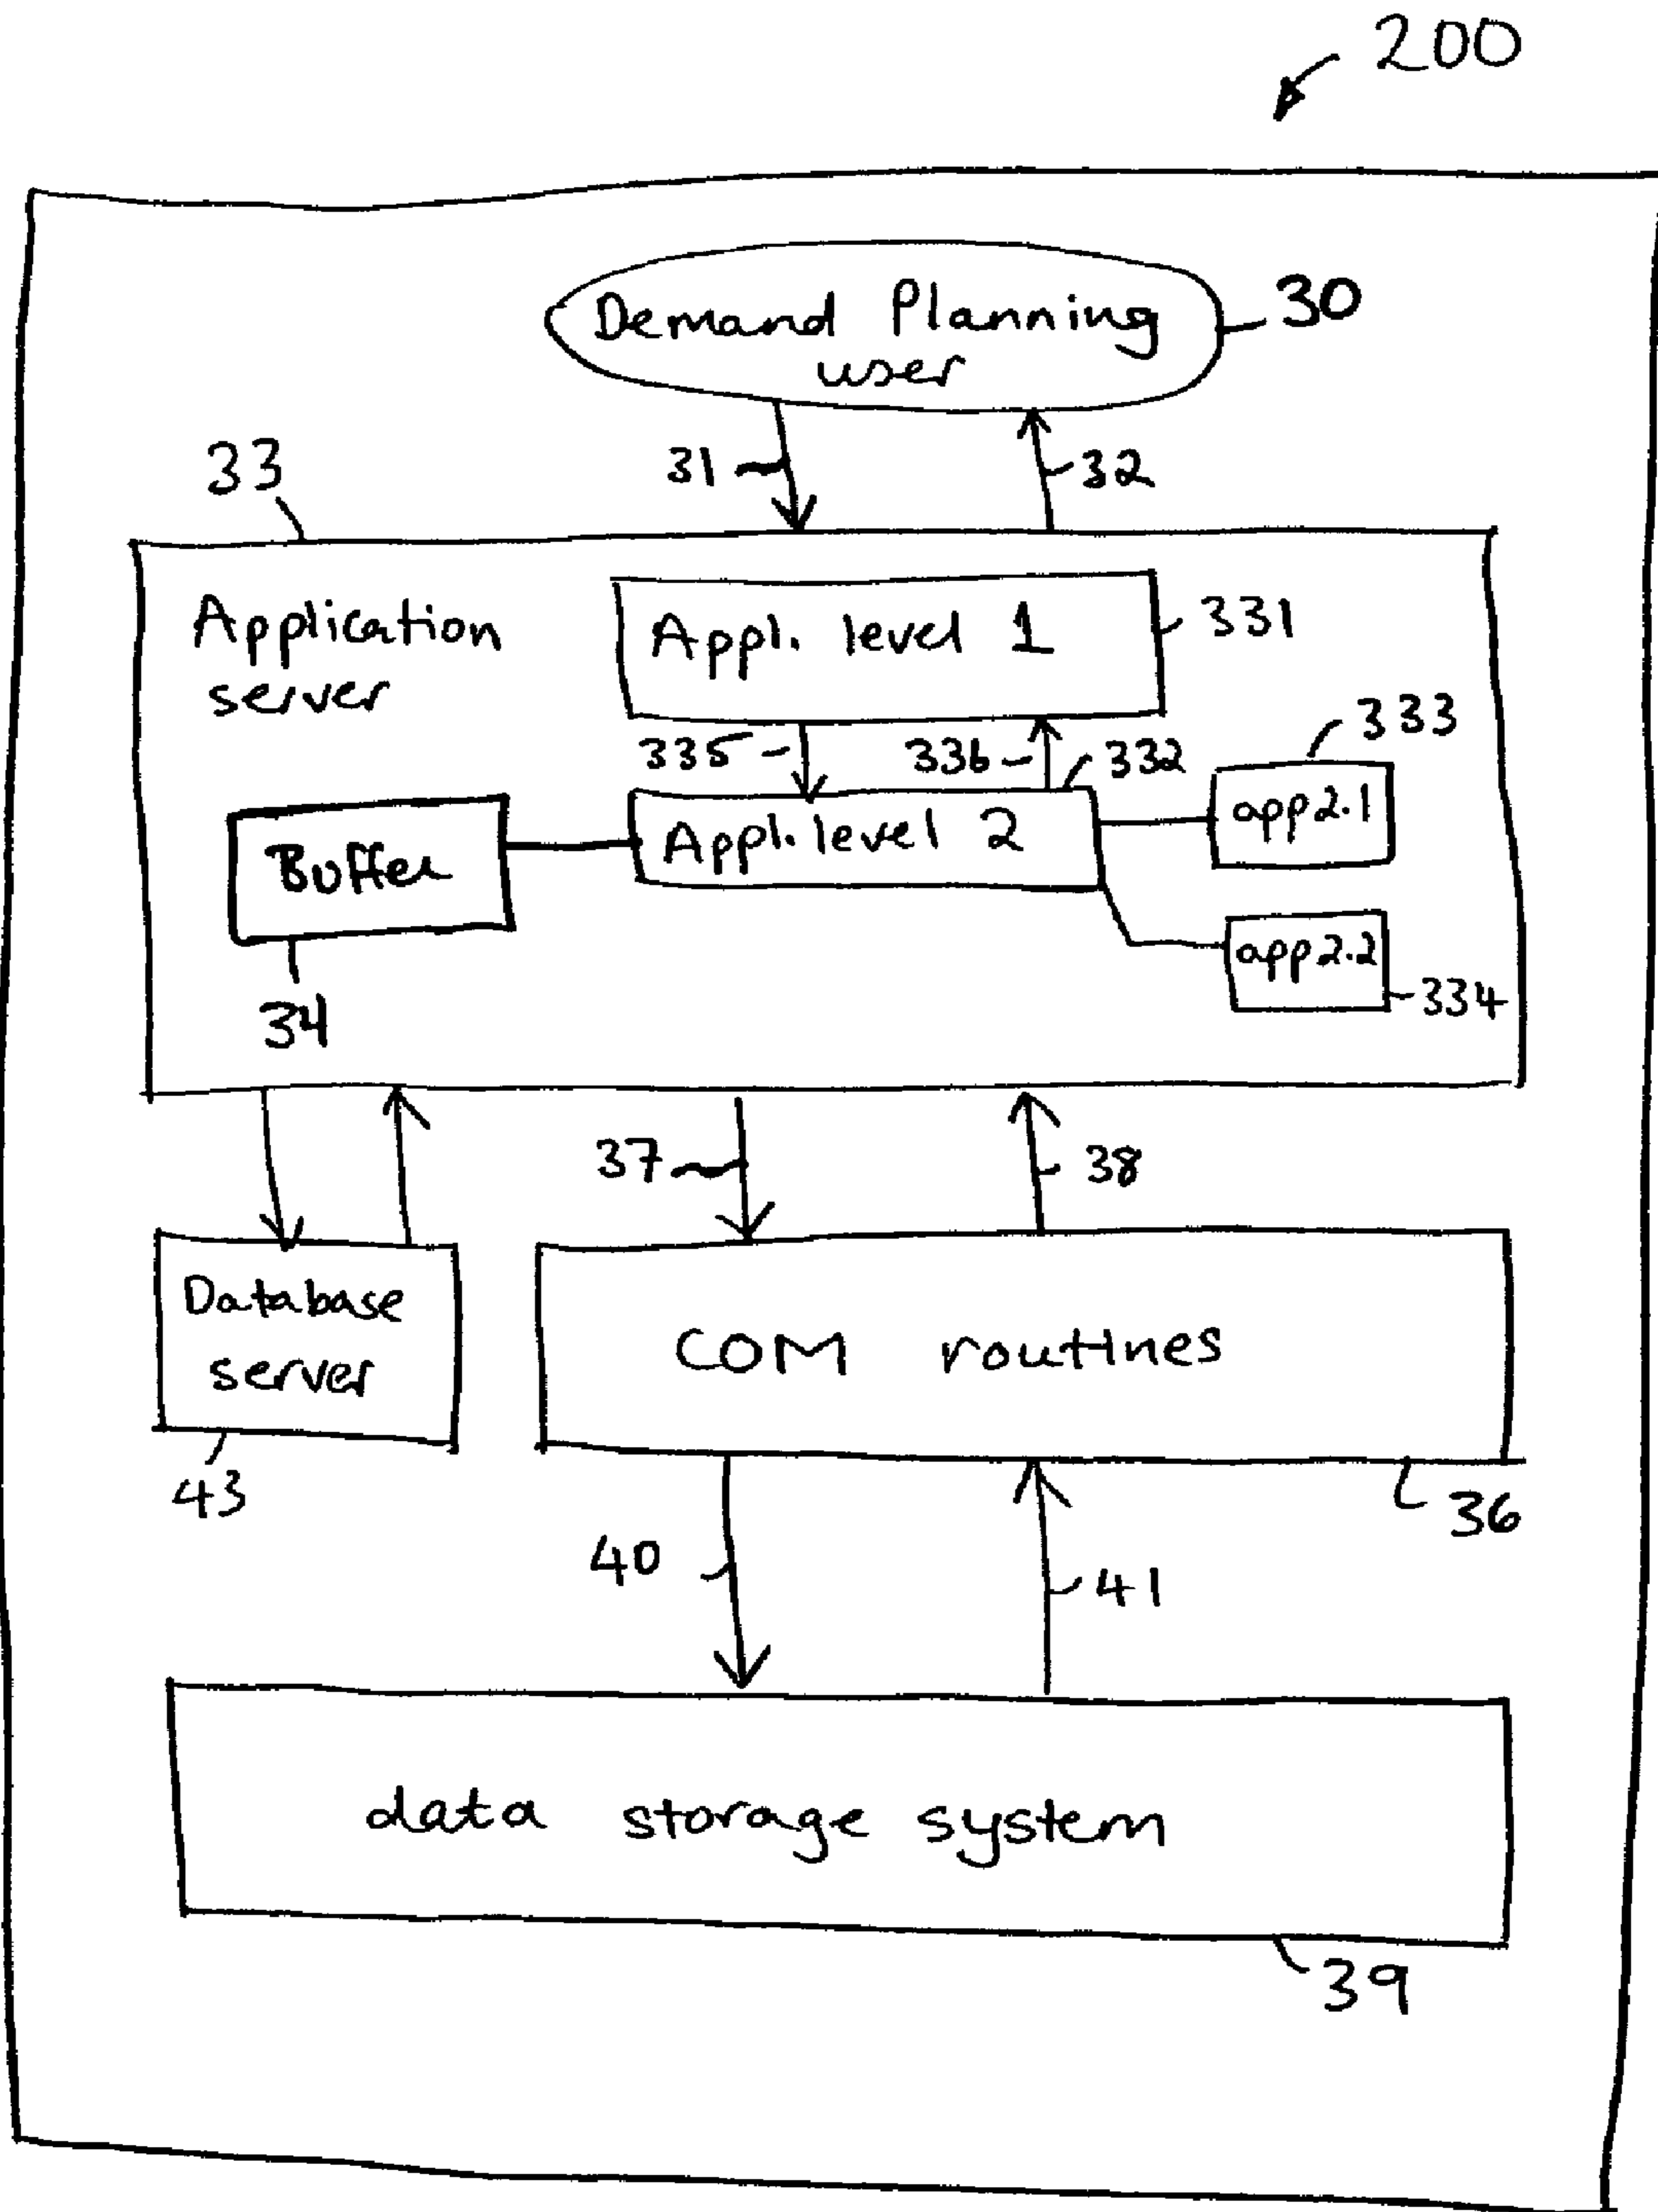 200
Demand Planning
user
30
31
32
33
Application
server
Appl. level 1
331
335
336
332
333
Buffer
Appl. level 2
app2.1
app2.2
34
334
37
38
Database
server
COM routines
43
36
40
41
data storage system
39